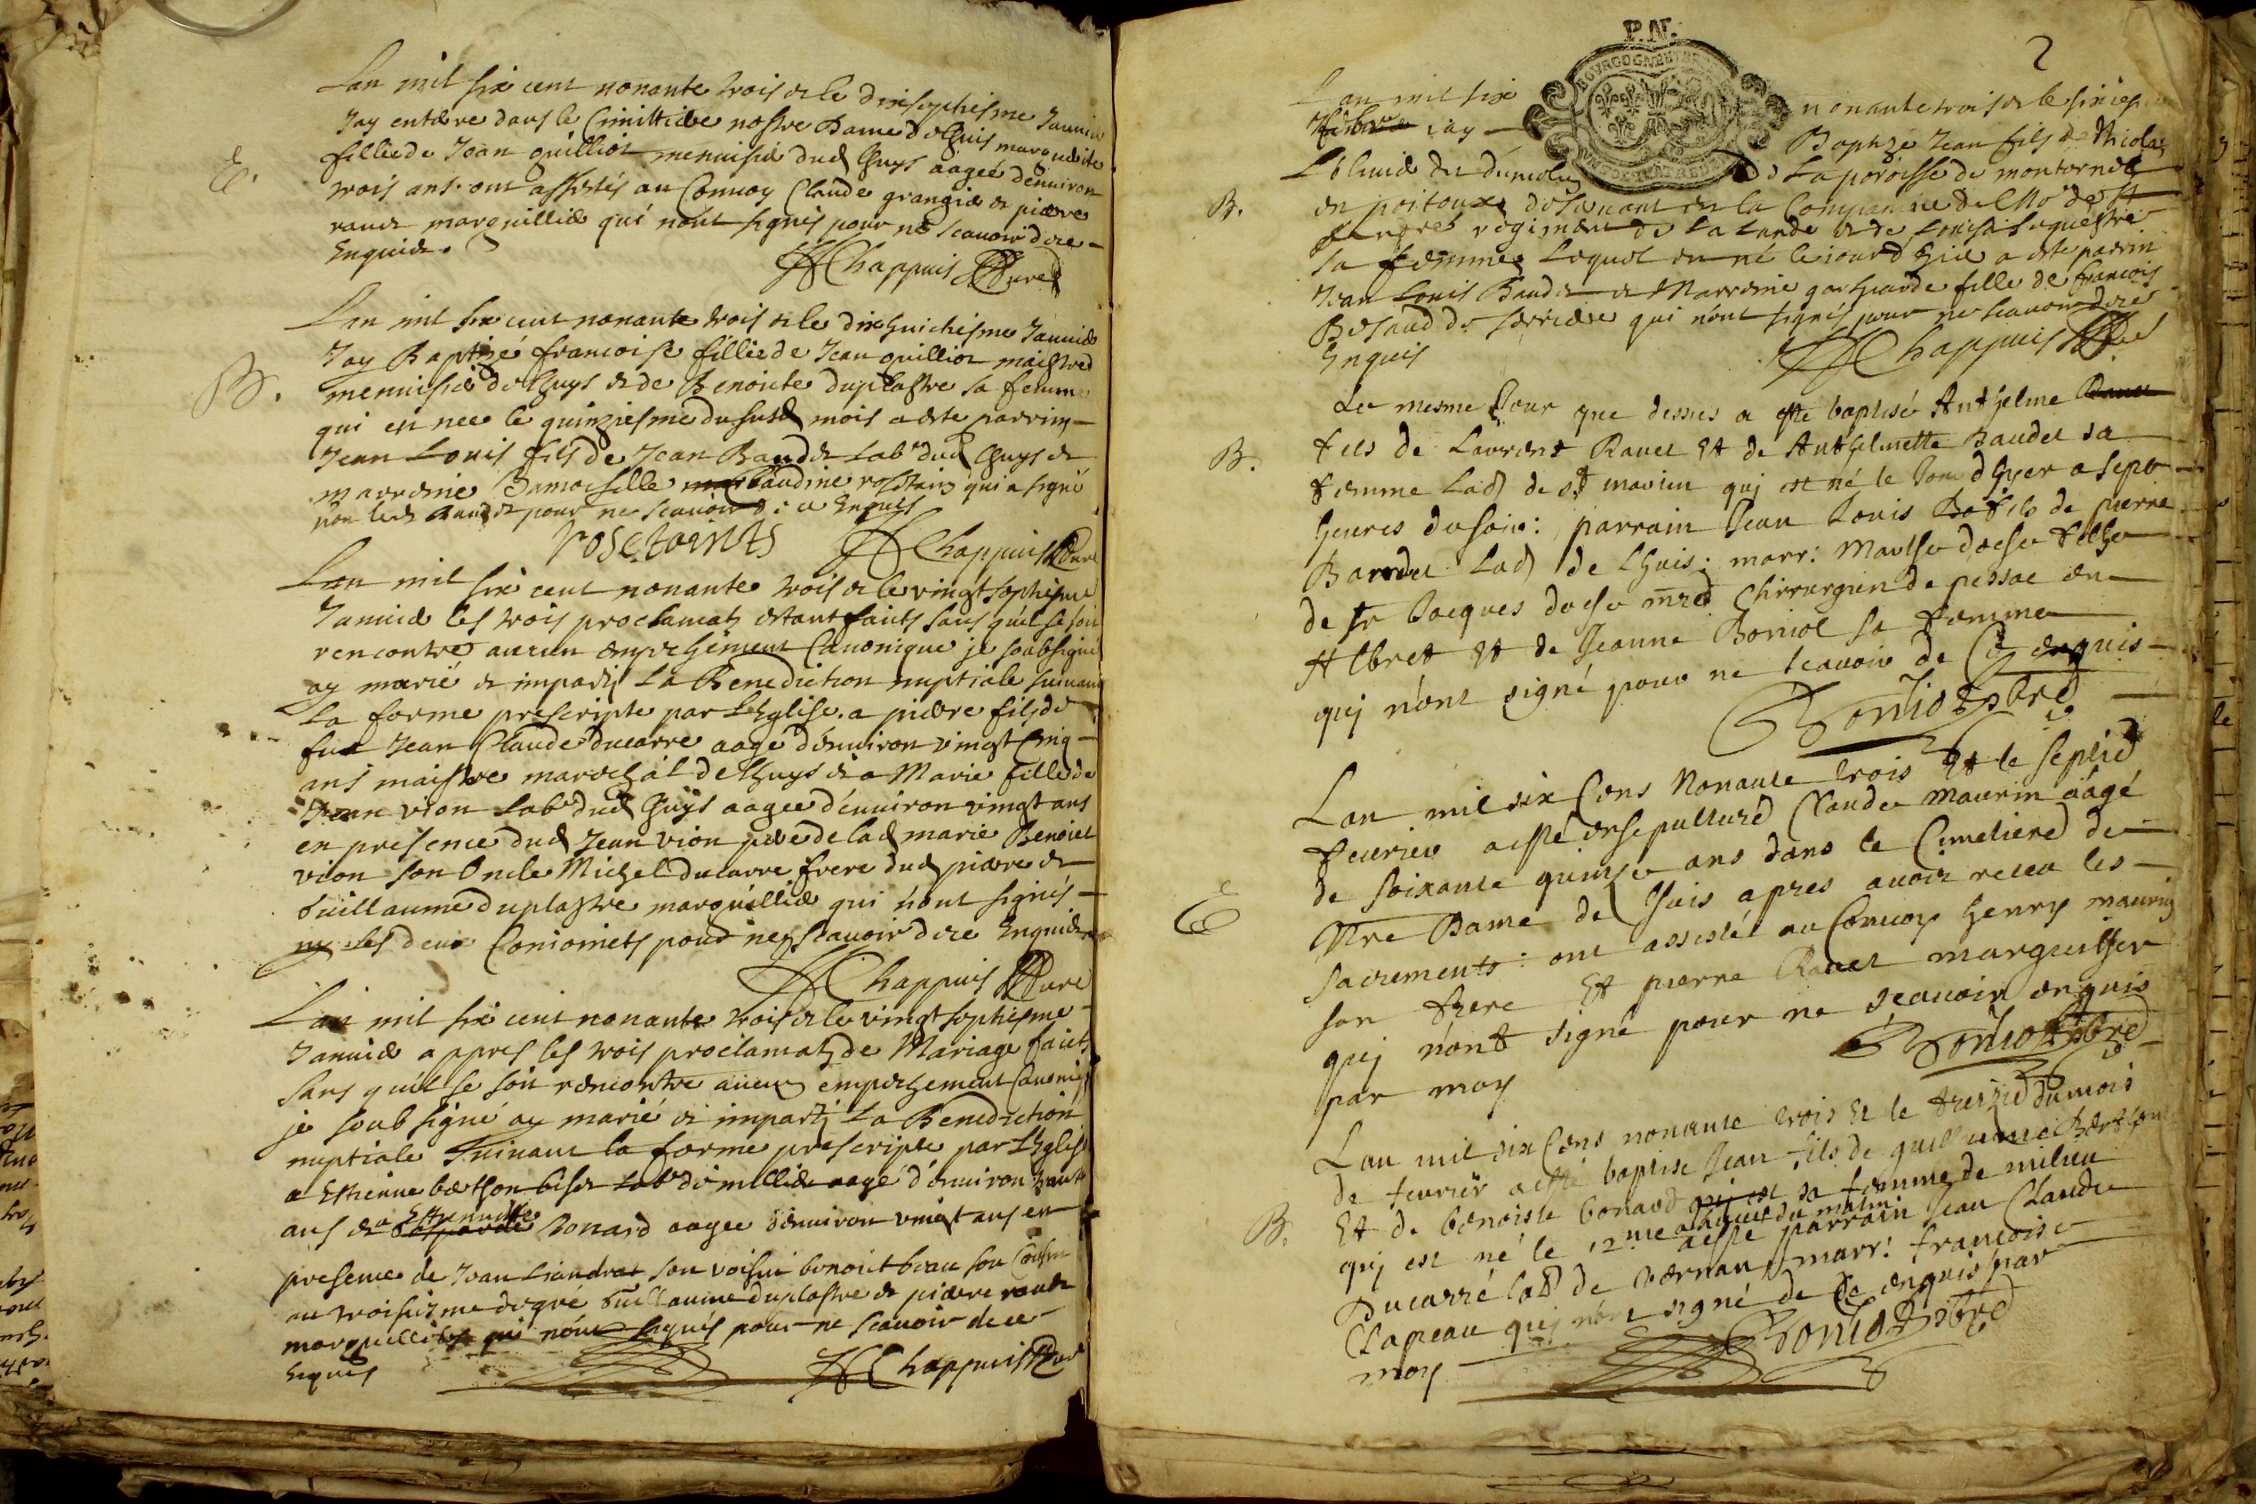 Lan mil six cent nonante trois & le dixseptiesme Januié
Jay entére dans le Cimittiére nostre Dame de Lhuis marguerite
E. fillie de Jean quilliot menuisié dud Lhuys aagée denuiron
trois ans. ont assistés au Conuoy Claude grangié & pierre
rauet marguillié qui n'ont signés pour ne scauoir dece
Enquis.
Chappuis Curé
Lan mil six cent nonante trois & le dixhuictiesme Januié
B. Jay Baptizé francoise fillie de Jean quilliot maistre
menuisié de Lhuys & de Benoite duplastre sa femme
qui est nee le quinziesme du susd mois a este parrin
Jean Louis fils de Jean Baudet Lab^r dud Lhuys &
marreine Damoiselle Claudine rostaing qui a signé
non led Baudet pour ne scauoir de ce Enquis
rostaints Chappuis Curé
Lan mil six cent nonante trois & le vingtseptiesme
Januié les trois proclamats estant faicts sans quil se soit
rencontre aucun empeschement Canonique je soubsigné
ay marié & imparty La Benediction nuptiale suiuant
La forme prescripte par LEglise. a piere fils de
fut Jean Claude ducarre aagé d'enuiron vingt Cinq
ans maistre mareschal de Lhuys & a Marie fille de
Jean vion Lab^r dud Lhuys aagee d'enuiron vingt ans
en presence dud Jean vion pere de lad marie Benoict
vion son Oncle Michel ducarre frere dud piere &
Guillaume duplastre marguillié qui n'ont signés
ny les deux Conioincts pour ne scauoir dece Enquis
Chappuis Curé
Lan mil six cent nonante trois & le vingtseptiesme
Januié appres les trois proclamats de Mariage faicts
sans quil se soit rencontre aucun empeschement Canoniq
je soubsigné ay marié & imparty La Benediction
nuptiale suiuant la forme prescripte par LEglise
a Estienne Lab^r de millié aagé d'enuiron trante
ans & a Estiennette Bonard aagee d'enuiron vingt ans en
presence de Jean Liandrat son voisin benoict son Cousin
au troisiesme degré Guillaume duplastre & pierre rauet
marguilliés qui n'ont signés pour ne scauoir dece
Enquis
Chappuis Curé
P.N.
2
BOURGOGNE
Lan mil six nonante trois & le sixiesme
jay Baptize Jean fils de Nicolas
de La paroisse de
B. en poitoux de la Compagnie de
regiment de La Lande & de Louise
sa femme Lequel est né le iourd'hié a este parrin
Jean Louis Baudet & Marreine fille de francois
qui n'ont signés pour ne scauoir dece
Enquis
Chappuis Curé
Le mesme Jour que dessus a esté baptisé Anthelme
B. fils de Laurent Rauet Et de Anthelmette Baudet sa
femme Lad de qui est né le Jour dhyer a sept
heures du soir: parrain Jean Louis fils de pierre
Baudet Lad de Lhuis: marr: Marthe fillie
de S^r Jacques Chirurgien de pessac en
Albret Et de Jeanne Boniol sa femme
qui n'ont signé pour ne scauoir de Ce enquis
Lan mil six Cens Nonante trois Et le septié
feurier a esté ensepulturé Claude Maurin aagé
E de soixante quinse ans dans le Cimetiere de
Ntre Dame de Lhuis apres auoir receu les
sacrements: ont assisté au Conuoy henry maurin
son frere Et pierre Rauet marguillier
qui n'ont signé pour ne scauoir enquis
par moy
Lan mil six Cens nonante trois Et le treizie du mois
de feurier a esté baptisé Jean fils de guillaume
B. Et de benoiste bonard sa femme de milieu
qui est né le 12^me a du matin
a esté parrain Jean Claude
Ducarré lab de marr: francoise
Clapeau qui n'ont signé de Ce enquis par
moy